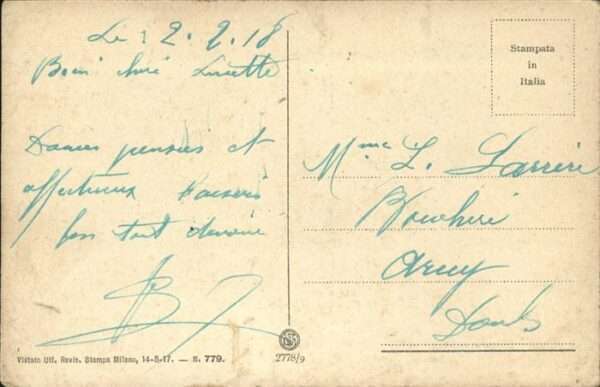 Le : 2.2.18
Bien chère Lucette
Douces pensées et
affectueux baisers
ton tout
Stampata
in
Italia
Mme L.
Arcey
Doubs
Vistato Uff. Revis. Stampa Milano, 14-5-17. — N. 779.
2778/9